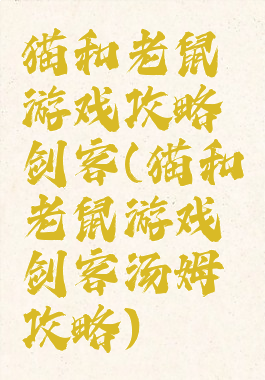 猫和老鼠
游戏攻略
剑客(猫和
老鼠游戏
剑客汤姆
攻略)